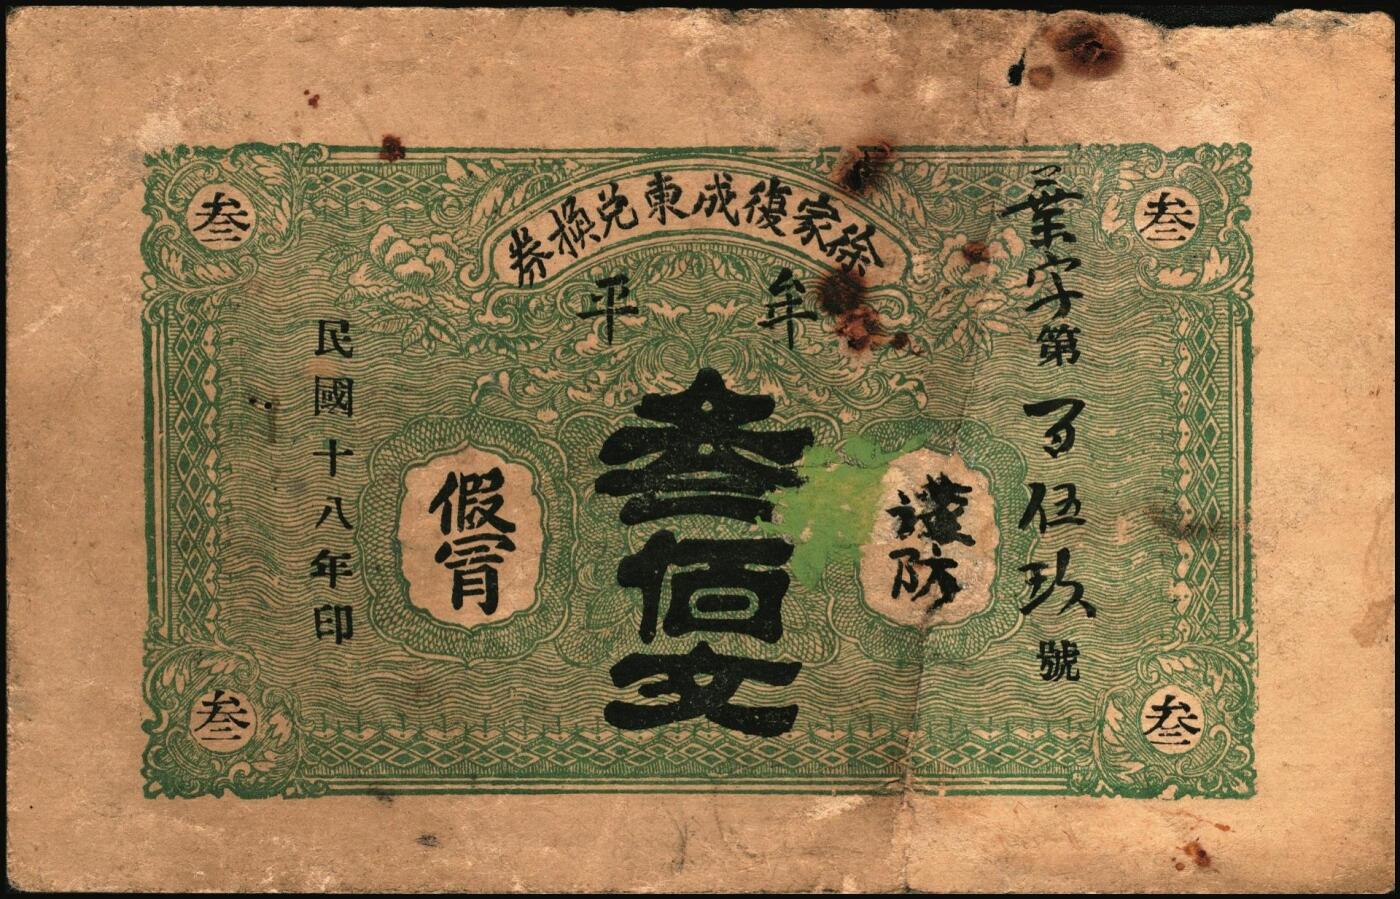 徐家復成東兌換券
牟平
叁
叁
葉字第百伍玖號
叁佰文
謹防
假冒
民國十八年印
叁
叁